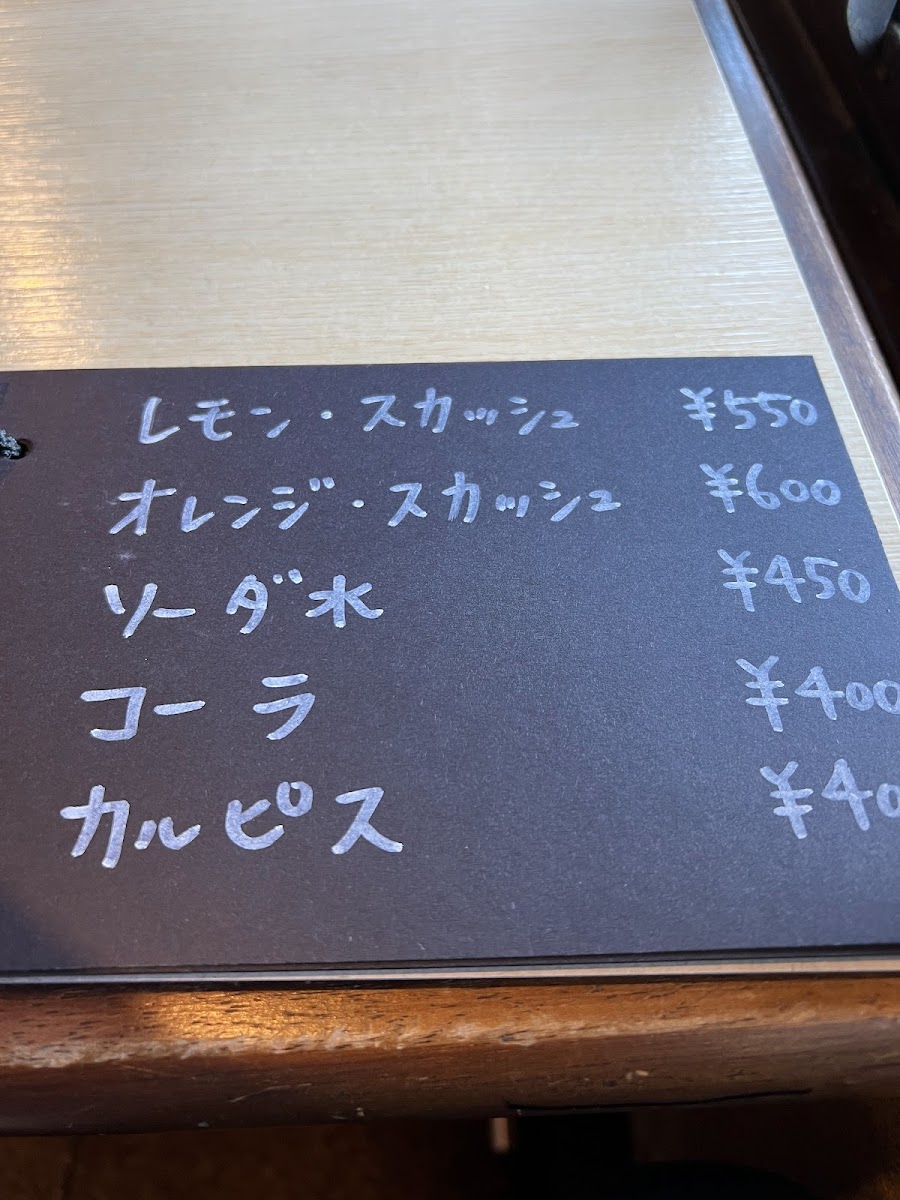 レモン・スカッシュ ¥550
オレンジ・スカッシュ ¥600
ソーダ水 ¥450
コーラ ¥400
カルピス ¥40